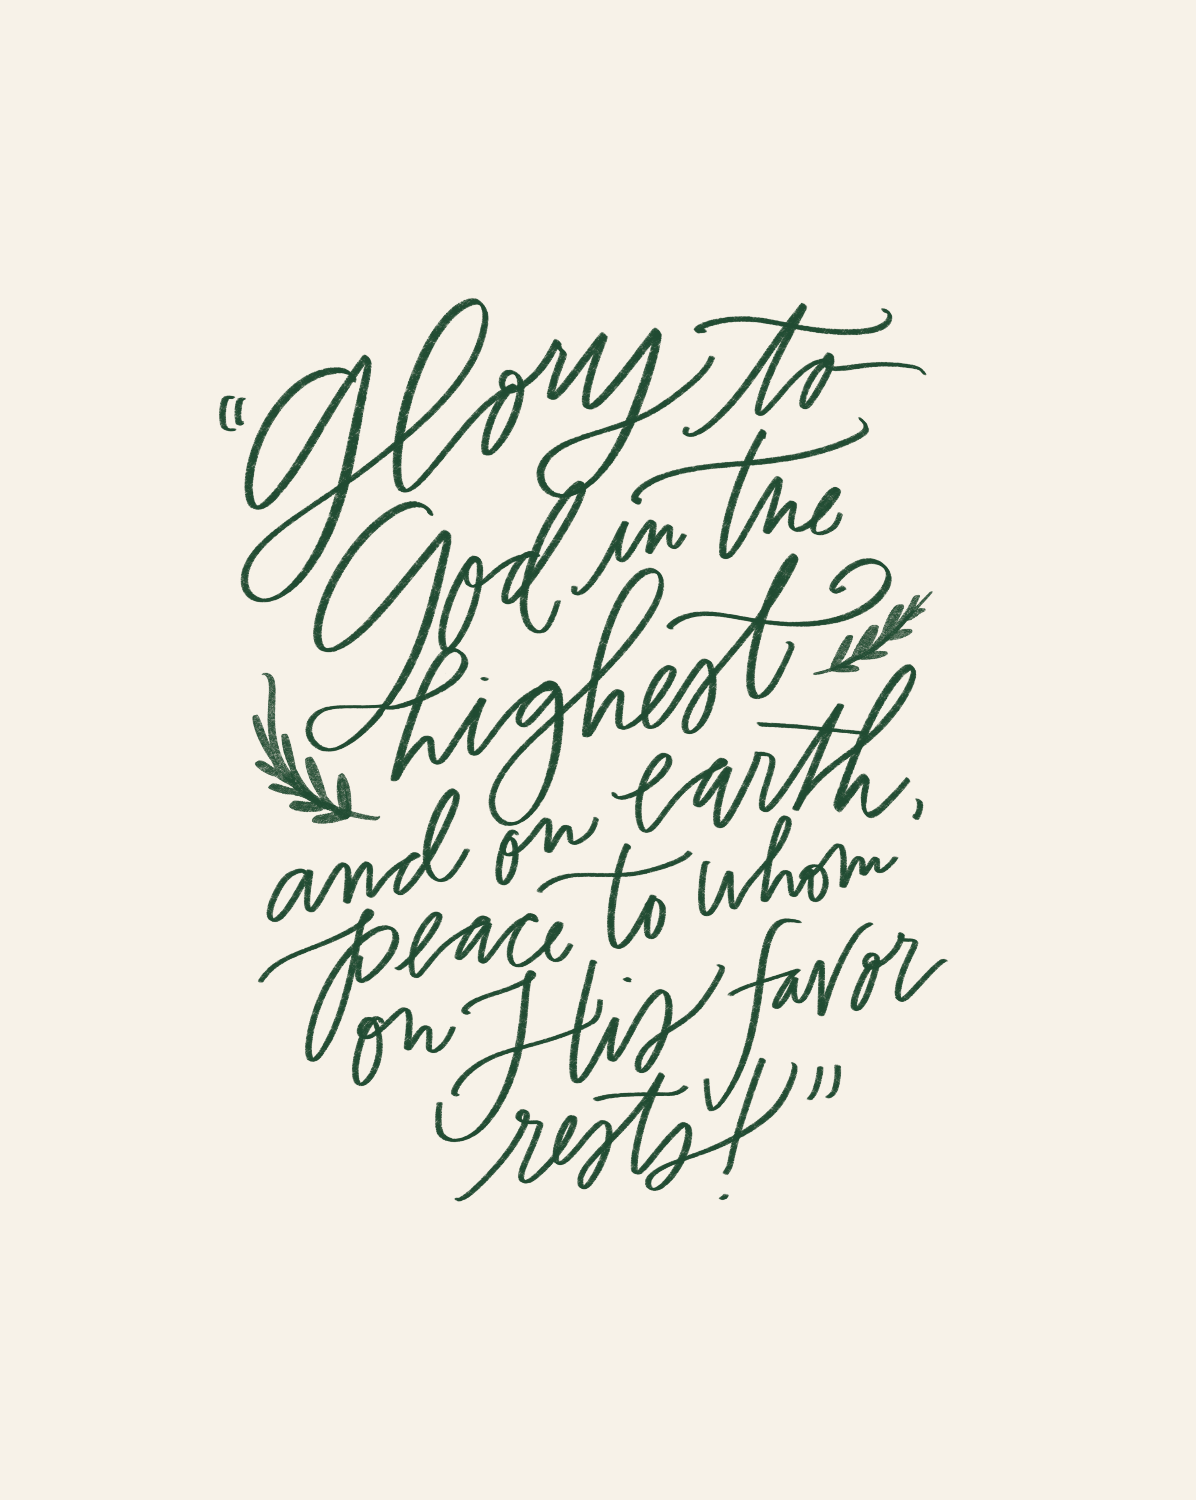 "Glory to
God in the
highest
and on earth,
peace to whom
on His favor
rests!"